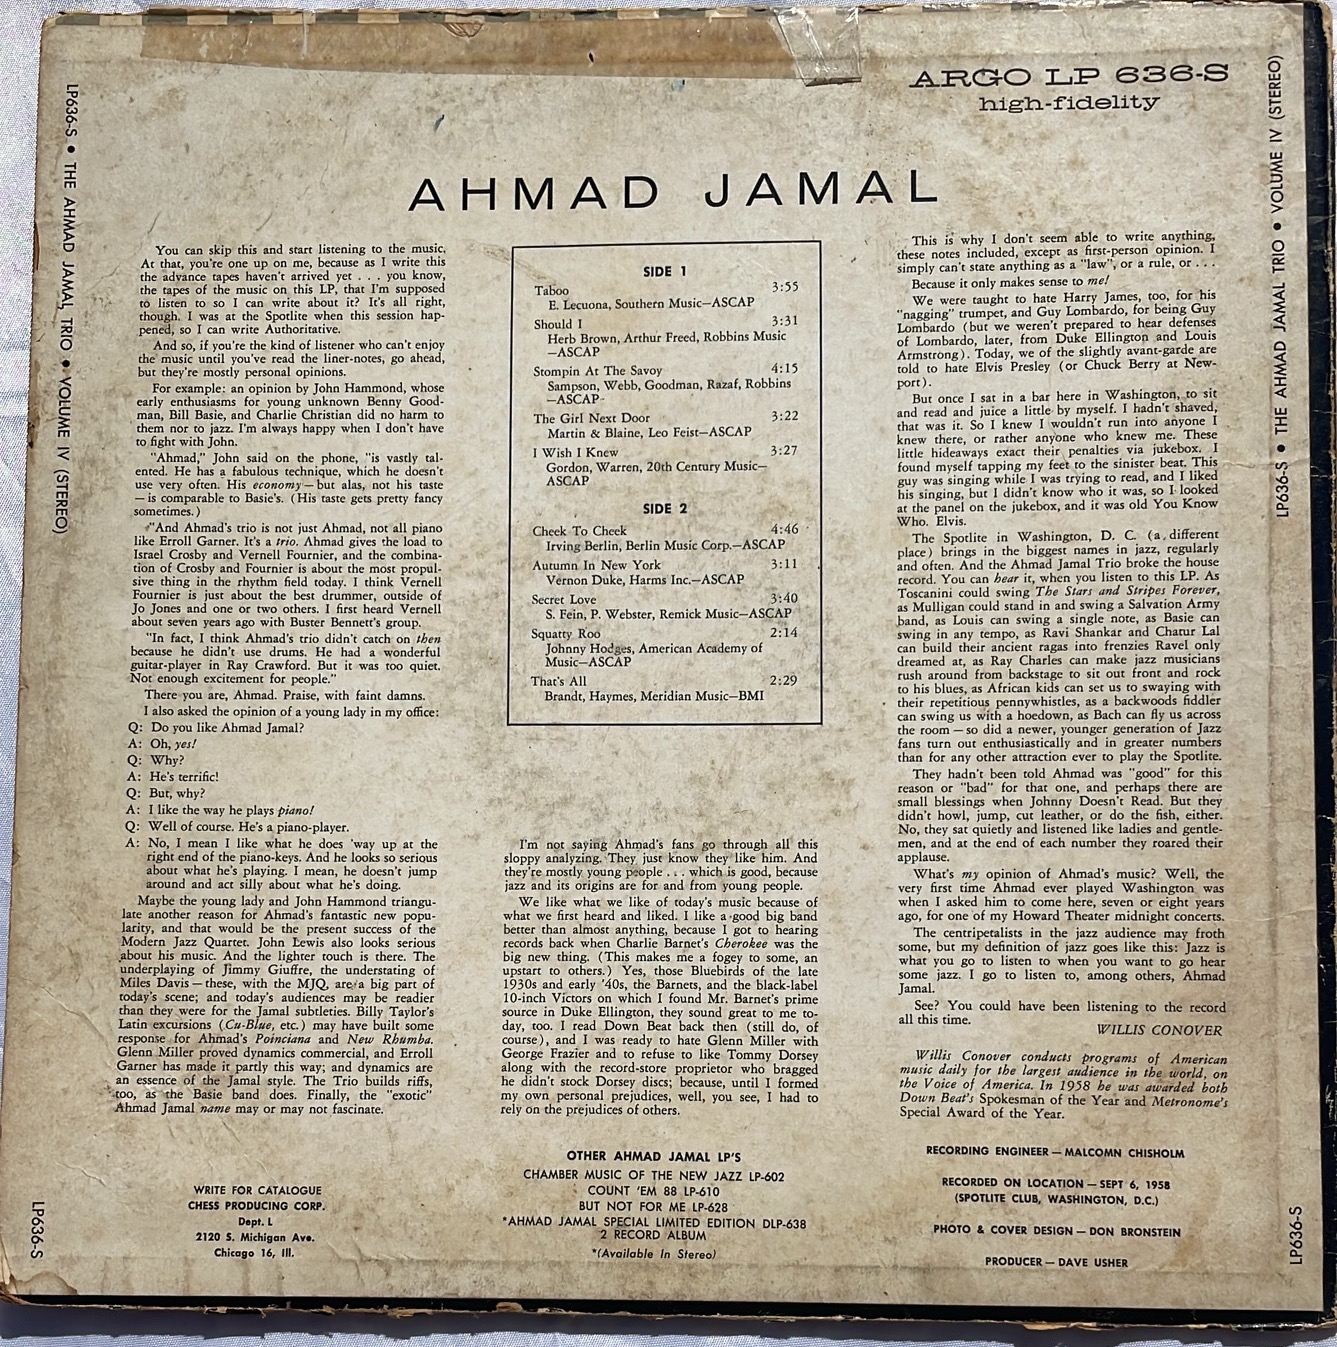 ARGO LP 636-S
high-fidelity
AHMAD JAMAL
LP636-S • THE AHMAD JAMAL TRIO • VOLUME IV (STEREO)
LP636-S
You can skip this and start listening to the music.
At that, you're one up on me, because as I write this
the advance tapes haven't arrived yet . . . you know,
the tapes of the music on this LP, that I'm supposed
to listen to so I can write about it? It's all right,
though. I was at the Spotlite when this session hap-
pened, so I can write Authoritative.
And so, if you're the kind of listener who can't enjoy
the music until you've read the liner-notes, go ahead,
but they're mostly personal opinions.
For example: an opinion by John Hammond, whose
early enthusiasms for young unknown Benny Good-
man, Bill Basie, and Charlie Christian did no harm to
them nor to jazz. I'm always happy when I don't have
to fight with John.
"Ahmad," John said on the phone, "is vastly tal-
ented. He has a fabulous technique, which he doesn't
use very often. His economy—but alas, not his taste
—is comparable to Basie's. (His taste gets pretty fancy
sometimes.)
"And Ahmad's trio is not just Ahmad, not all piano
like Erroll Garner. It's a trio. Ahmad gives the load to
Israel Crosby and Vernell Fournier, and the combina-
tion of Crosby and Fournier is about the most propul-
sive thing in the rhythm field today. I think Vernell
Fournier is just about the best drummer, outside of
Jo Jones and one or two others. I first heard Vernell
about seven years ago with Buster Bennett's group.
"In fact, I think Ahmad's trio didn't catch on then
because he didn't use drums. He had a wonderful
guitar-player in Ray Crawford. But it was too quiet.
Not enough excitement for people."
There you are, Ahmad. Praise, with faint damns.
I also asked the opinion of a young lady in my office:
Q: Do you like Ahmad Jamal?
A: Oh, yes!
Q: Why?
A: He's terrific!
Q: But, why?
A: I like the way he plays piano!
Q: Well of course. He's a piano-player.
A: No, I mean I like what he does 'way up at the
right end of the piano-keys. And he looks so serious
about what he's playing. I mean, he doesn't jump
around and act silly about what he's doing.
Maybe the young lady and John Hammond triangu-
late another reason for Ahmad's fantastic new popu-
larity, and that would be the present success of the
Modern Jazz Quartet. John Lewis also looks serious
about his music. And the lighter touch is there. The
underplaying of Jimmy Giuffre, the understating of
Miles Davis—these, with the MJQ, are a big part of
today's scene; and today's audiences may be readier
than they were for the Jamal subtleties. Billy Taylor's
Latin excursions (Cu-Blue, etc.) may have built some
response for Ahmad's Poinciana and New Rhumba.
Glenn Miller proved dynamics commercial, and Erroll
Garner has made it partly this way; and dynamics are
an essence of the Jamal style. The Trio builds riffs,
too, as the Basie band does. Finally, the "exotic"
Ahmad Jamal name may or may not fascinate.
WRITE FOR CATALOGUE
CHESS PRODUCING CORP.
Dept. L
2120 S. Michigan Ave.
Chicago 16, Ill.
SIDE 1
Taboo 3:55
E. Lecuona, Southern Music—ASCAP
Should I 3:31
Herb Brown, Arthur Freed, Robbins Music
—ASCAP
Stompin At The Savoy 4:15
Sampson, Webb, Goodman, Razaf, Robbins
—ASCAP
The Girl Next Door 3:22
Martin & Blaine, Leo Feist—ASCAP
I Wish I Knew 3:27
Gordon, Warren, 20th Century Music—
ASCAP
SIDE 2
Cheek To Cheek 4:46
Irving Berlin, Berlin Music Corp.—ASCAP
Autumn In New York 3:11
Vernon Duke, Harms Inc.—ASCAP
Secret Love 3:40
S. Fein, P. Webster, Remick Music—ASCAP
Squatty Roo 2:14
Johnny Hodges, American Academy of
Music—ASCAP
That's All 2:29
Brandt, Haymes, Meridian Music—BMI
I'm not saying Ahmad's fans go through all this
sloppy analyzing. They just know they like him. And
they're mostly young people . . . which is good, because
jazz and its origins are for and from young people.
We like what we like of today's music because of
what we first heard and liked. I like a good big band
better than almost anything, because I got to hearing
records back when Charlie Barnet's Cherokee was the
big new thing. (This makes me a fogey to some, an
upstart to others.) Yes, those Bluebirds of the late
1930s and early '40s, the Barnets, and the black-label
10-inch Victors on which I found Mr. Barnet's prime
source in Duke Ellington, they sound great to me to-
day, too. I read Down Beat back then (still do, of
course), and I was ready to hate Glenn Miller with
George Frazier and to refuse to like Tommy Dorsey
along with the record-store proprietor who bragged
he didn't stock Dorsey discs; because, until I formed
my own personal prejudices, well, you see, I had to
rely on the prejudices of others.
OTHER AHMAD JAMAL LP'S
CHAMBER MUSIC OF THE NEW JAZZ LP-602
COUNT 'EM 88 LP-610
BUT NOT FOR ME LP-628
*AHMAD JAMAL SPECIAL LIMITED EDITION DLP-638
2 RECORD ALBUM
*(Available In Stereo)
This is why I don't seem able to write anything,
these notes included, except as first-person opinion. I
simply can't state anything as a "law", or a rule, or . . .
Because it only makes sense to me!
We were taught to hate Harry James, too, for his
"nagging" trumpet, and Guy Lombardo, for being Guy
Lombardo (but we weren't prepared to hear defenses
of Lombardo, later, from Duke Ellington and Louis
Armstrong). Today, we of the slightly avant-garde are
told to hate Elvis Presley (or Chuck Berry at New-
port).
But once I sat in a bar here in Washington, to sit
and read and juice a little by myself. I hadn't shaved,
that was it. So I knew I wouldn't run into anyone I
knew there, or rather anyone who knew me. These
little hideaways exact their penalties via jukebox. I
found myself tapping my feet to the sinister beat. This
guy was singing while I was trying to read, and I liked
his singing, but I didn't know who it was, so I looked
at the panel on the jukebox, and it was old You Know
Who. Elvis.
The Spotlite in Washington, D. C. (a different
place) brings in the biggest names in jazz, regularly
and often. And the Ahmad Jamal Trio broke the house
record. You can hear it, when you listen to this LP. As
Toscanini could swing The Stars and Stripes Forever,
as Mulligan could stand in and swing a Salvation Army
band, as Louis can swing a single note, as Basie can
swing in any tempo, as Ravi Shankar and Chatur Lal
can build their ancient ragas into frenzies Ravel only
dreamed at, as Ray Charles can make jazz musicians
rush around from backstage to sit out front and rock
to his blues, as African kids can set us to swaying with
their repetitious pennywhistles, as a backwoods fiddler
can swing us with a hoedown, as Bach can fly us across
the room—so did a newer, younger generation of Jazz
fans turn out enthusiastically and in greater numbers
than for any other attraction ever to play the Spotlite.
They hadn't been told Ahmad was "good" for this
reason or "bad" for that one, and perhaps there are
small blessings when Johnny Doesn't Read. But they
didn't howl, jump, cut leather, or do the fish, either.
No, they sat quietly and listened like ladies and gentle-
men, and at the end of each number they roared their
applause.
What's my opinion of Ahmad's music? Well, the
very first time Ahmad ever played Washington was
when I asked him to come here, seven or eight years
ago, for one of my Howard Theater midnight concerts.
The centripetalists in the jazz audience may froth
some, but my definition of jazz goes like this: Jazz is
what you go to listen to when you want to go hear
some jazz. I go to listen to, among others, Ahmad
Jamal.
See? You could have been listening to the record
all this time.
WILLIS CONOVER
Willis Conover conducts programs of American
music daily for the largest audience in the world, on
the Voice of America. In 1958 he was awarded both
Down Beat's Spokesman of the Year and Metronome's
Special Award of the Year.
RECORDING ENGINEER — MALCOMN CHISHOLM
RECORDED ON LOCATION — SEPT 6, 1958
(SPOTLITE CLUB, WASHINGTON, D.C.)
PHOTO & COVER DESIGN — DON BRONSTEIN
PRODUCER — DAVE USHER
LP636-S • THE AHMAD JAMAL TRIO • VOLUME IV (STEREO)
LP636-S